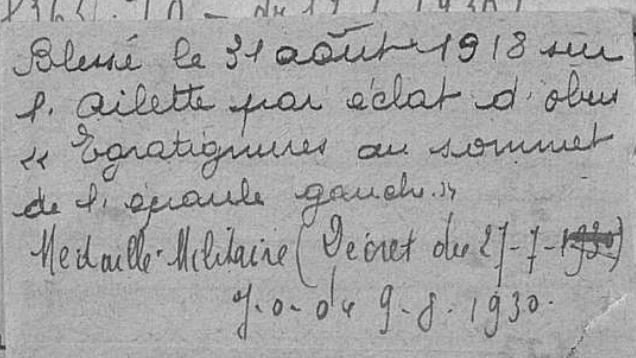 Blessé le 31 août 1918 sur
l'ailette par éclat d'obus
« Egratignures au sommet
de l'épaule gauche. »
Médaille Militaire (Décret du 27-7-1930)
J.O. du 9-8-1930.